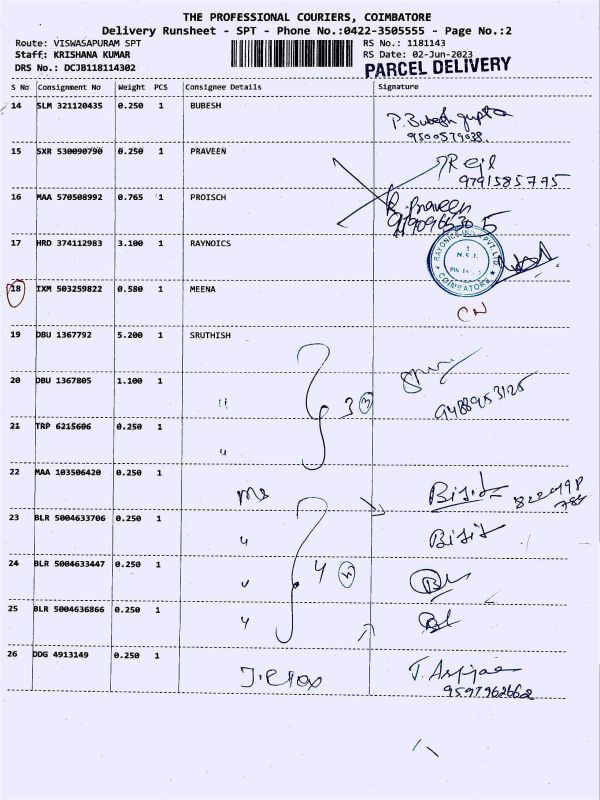 THE PROFESSIONAL COURIERS, COIMBATORE
Delivery Runsheet - SPT - Phone No.:0422-3505555 - Page No.:2
Route: VISWASAPURAM SPT
RS No.: 1181143
Staff: KRISHANA KUMAR
RS Date: 02-Jun-2023
DRS No.: DCJB118114302
PARCEL DELIVERY
S No Consignment No Weight PCS Consignee Details Signature
14 SLM 321120435 0.250 1 BUBESH
P. Bubesh gupta
9500579038.
15 SXR 530090790 0.250 1 PRAVEEN
9791585775
16 MAA 570508992 0.765 1 PROISCH
R. Praveen
17 HRD 374112983 3.100 1 RAYNOICS
COIMBATORE
18 IXM 503259822 0.580 1 MEENA
CN
19 DBU 1367792 5.200 1 SRUTHISH
20 DBU 1367805 1.100 1 "
3
9488953125
21 TRP 6215606 0.250 1 "
22 MAA 103506420 0.250 1
23 BLR 5004633706 0.250 1 "
24 BLR 5004633447 0.250 1 "
4
25 BLR 5004636866 0.250 1 "
26 DDG 4913149 0.250 1
9597962662